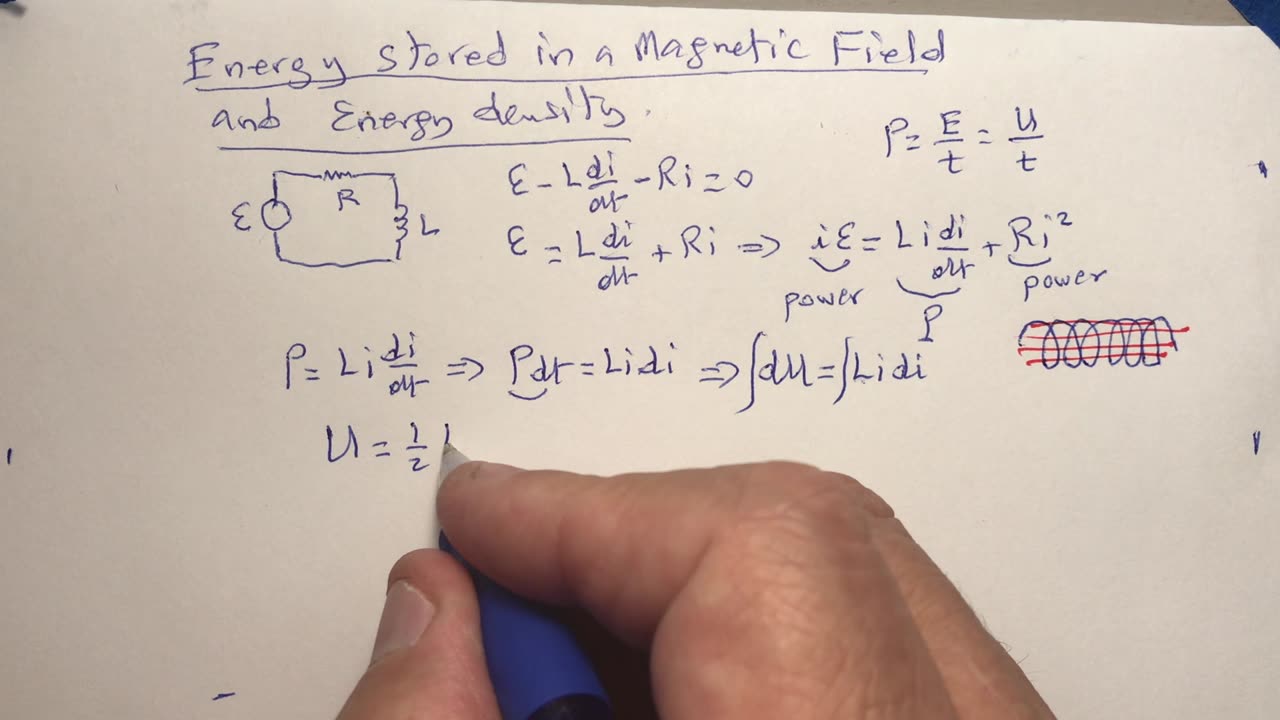 Energy stored in a Magnetic Field
and Energy density.
P = E/t = U/t
ε R L
ε - L di/dt - Ri = 0
ε = L di/dt + Ri ⇒ iε = Li di/dt + Ri²
power P power
P = Li di/dt ⇒ Pdt = Lidi ⇒ ∫dU = ∫Lidi
U = 1/2